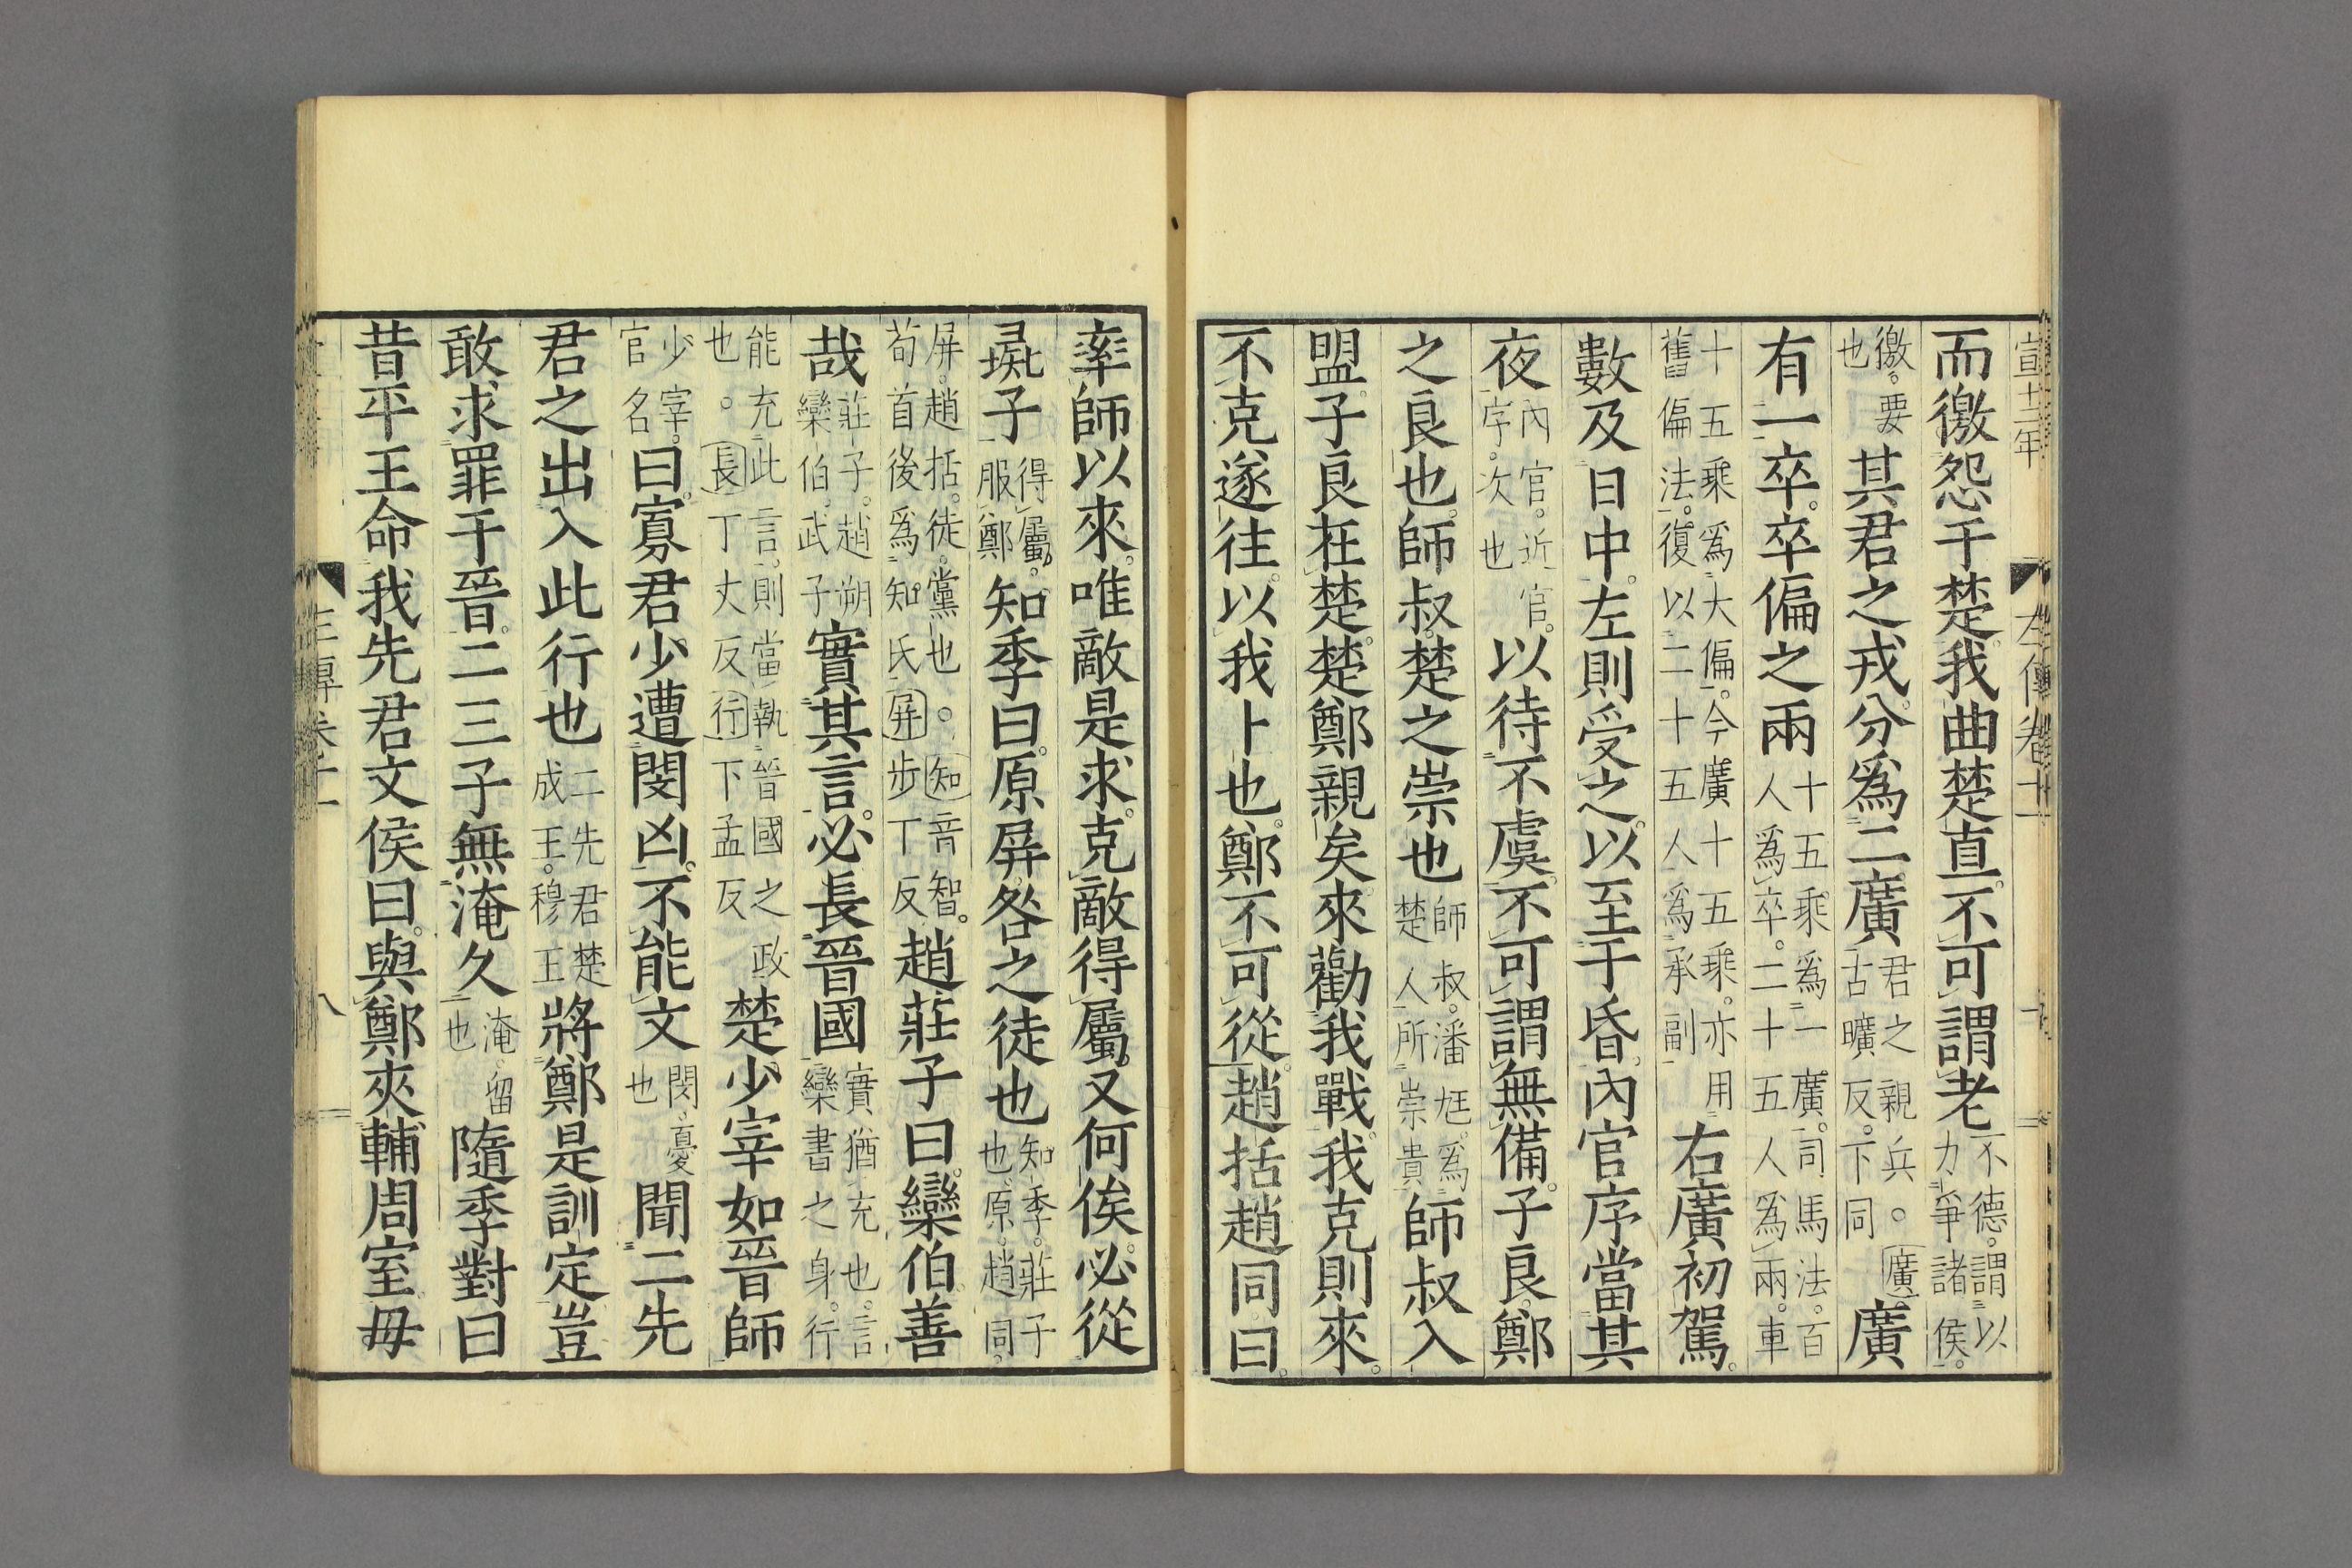 宣十二年　左傳卷十一
而徼怨于楚。我曲楚直。不可謂老不德。謂以力爭諸侯。
徼。要也其君之戎。分爲二廣君之親兵。廣古曠反。下同廣
有一卒。卒偏之兩十五乘爲一廣。司馬法。百人爲卒。二十五人爲兩。車
十五乘爲大偏。今廣十五乘。亦用舊偏法。復以二十五人爲承副右廣初駕。
數及日中。左則受之。以至于昏。內官序當其
夜內官。近官。序。次也以待不虞。不可謂無備。子良。鄭
之良也。師叔。楚之崇也師叔。潘尫。爲楚人所崇貴師叔入
盟。子良在楚。楚鄭親矣。來勸我戰。我克則來。
不克遂往。以我卜也。鄭不可從。趙括趙同曰。
率師以來。唯敵是求。克敵得屬。又何俟。必從
彘子得屬。服鄭知季曰。原屏。咎之徒也知季。莊子也。原。趙同。
屏。趙括。徒。黨也。知音智。荀首後爲知氏屏步丁反趙莊子曰。欒伯善
哉莊子。趙朔欒伯。武子實其言。必長晉國實猶充也。言欒書之身。行
能充此言。則當執晉國之政也。長丁丈反行下孟反楚少宰如晉師
少宰。官名曰。寡君少遭閔凶。不能文閔。憂也聞二先
君之出入此行也二先君楚成王。穆王將鄭是訓定。豈
敢求罪于晉。二三子無淹久淹。留也隨季對曰
昔平王命我先君文侯曰。與鄭夾輔周室毋
八